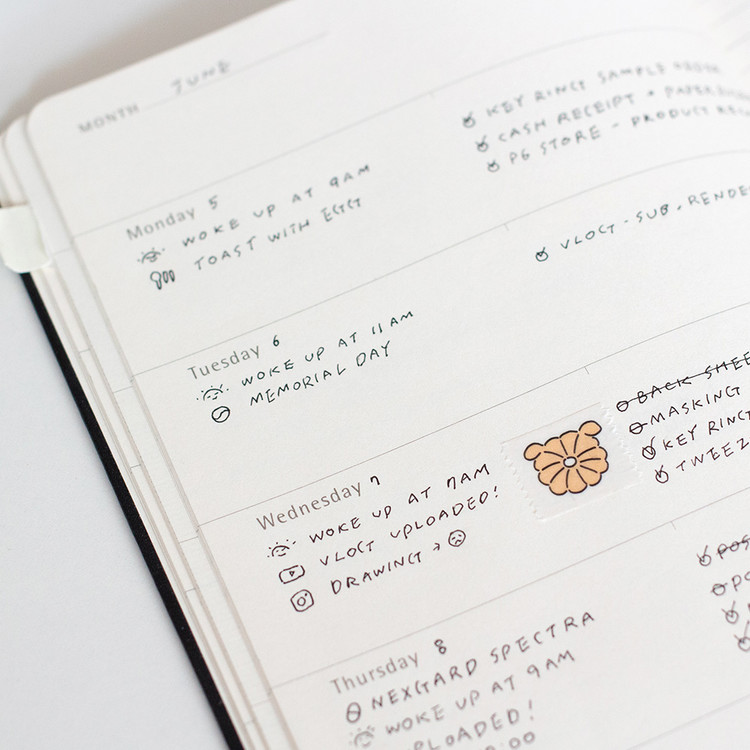 MONTH JUNE
KEY RING SAMPLE
CASH RECEIPT +
PG STORE - PRODUCT
Monday 5
WOKE UP AT 9AM
TOAST WITH EGG
VLOG - SUB. RENDE
Tuesday 6
WOKE UP AT 11AM
MEMORIAL DAY
BACK SHEE
MASKING
KEY RING
TWEEZ
Wednesday 7
WOKE UP AT 7AM
VLOG UPLOADED!
DRAWING →
POS
PO
Thursday 8
NEXGARD SPECTRA
WOKE UP AT 9AM
PLOADED!
:00